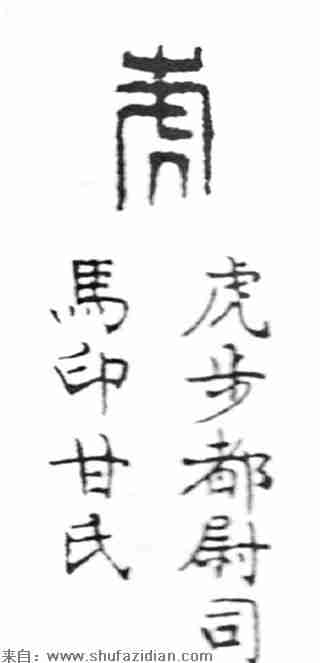 虎
虎步都尉司
馬印甘氏
来自：www.shufazidian.com